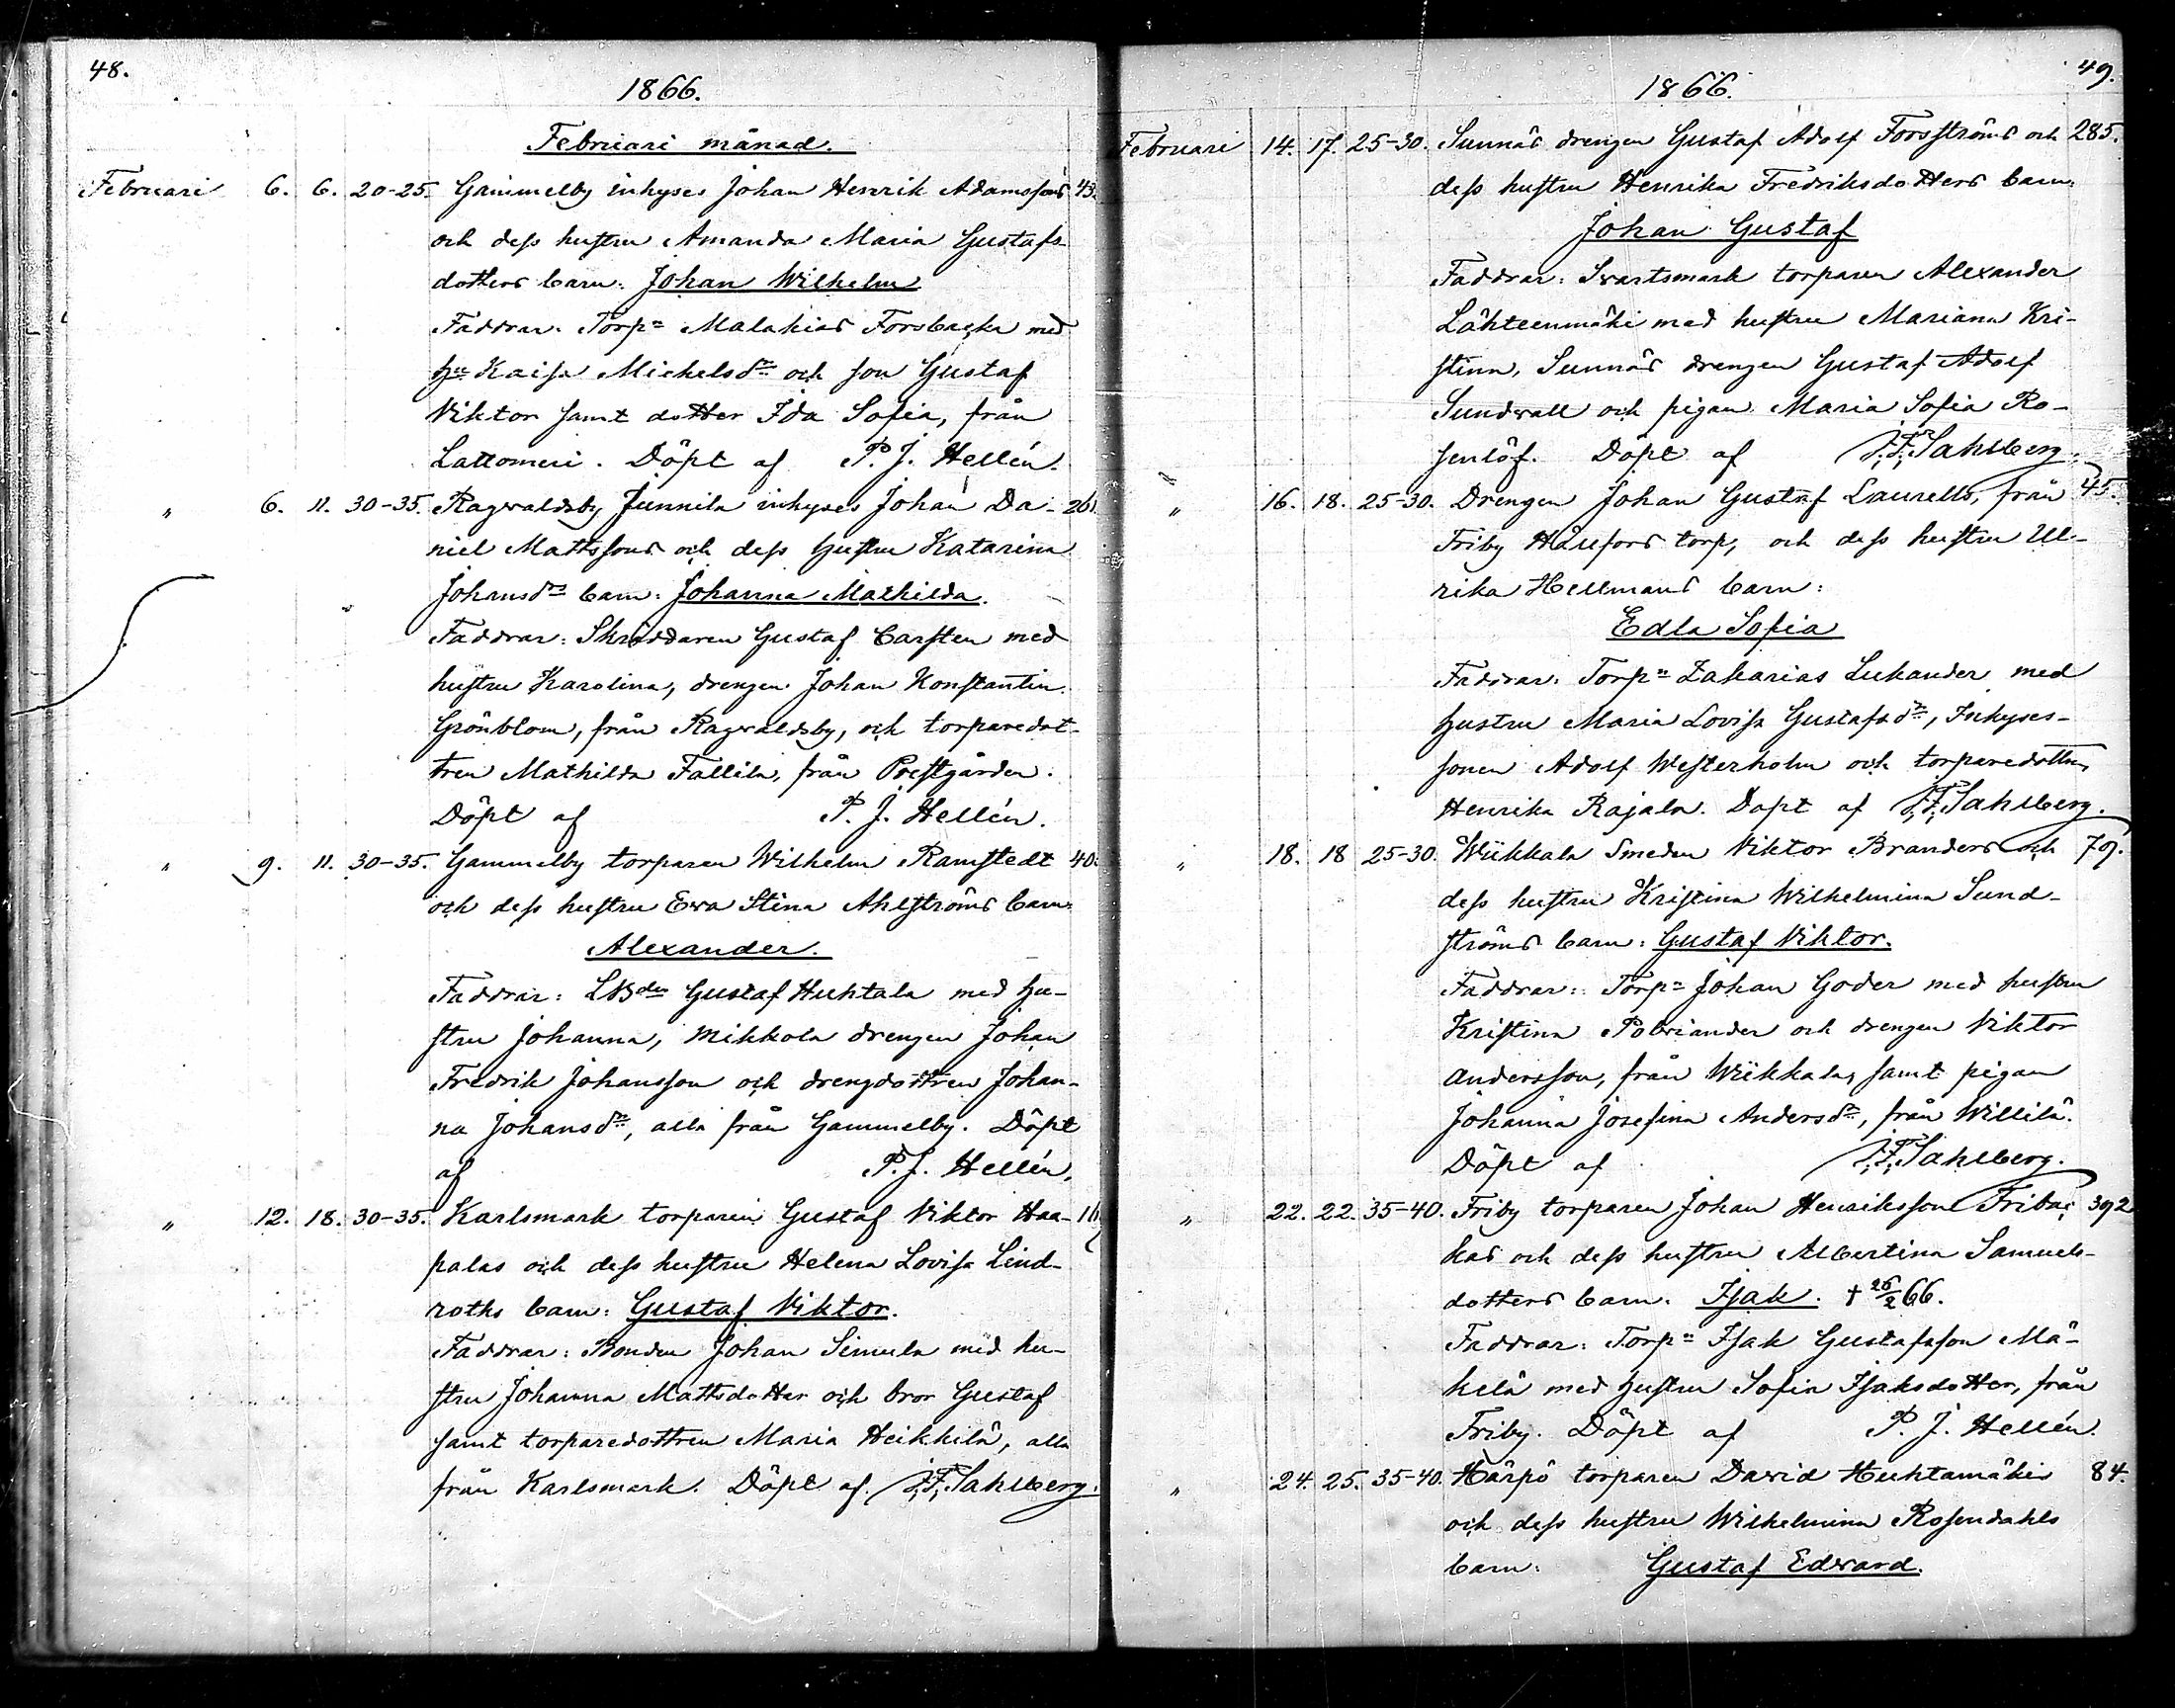 48.
1866.
Februari månad.
Februari 6. 6. 20-25. Gammelby inhyses Johan Henrik Adamssons 43.
och dess hustru Amanda Maria Gustafs-
dotters barn: Johan Wilhelm
Faddrar: Torp:n Malakias Forsbacka med
h:u Kaisa Mickelsd:r och son Gustaf
Viktor samt dotter Ida Sofia, från
Lattomeri. Döpt af P. J. Hellén.
" 6. 11. 30-35. Ragvaldsby Junnila inhyses Johan Da- 261
niel Mattssons och dess hustru Katarina
Johansd:r barn: Johanna Mathilda.
Faddrar: Skräddaren Gustaf Carsten med
hustru Karolina, drengen Johan Konstantin
Grönblom, från Ragvaldsby, och torparedot-
tren Mathilda Tallila, från Prestgården.
Döpt af P. J. Hellén.
" 9. 11. 30-35. Gammelby torparen Wilhelm Ramstedt 40.
och dess hustru Eva Stina Ahlströms barn:
Alexander.
Faddrar: LBden Gustaf Huhtala med hu-
stru Johanna, Mikkola drengen Johan
Fredrik Johansson och drengdottren Johan-
na Johansd:r, alla från Gammelby. Döpt
af P. J. Hellén.
" 12. 18. 30-35. Karlsmark torparen Gustaf Viktor Haa-
palas och dess hustru Helena Lovisa Lind-
roths barn: Gustaf Viktor.
Faddrar: Bonden Johan Simula med hu-
stru Johanna Mattsdotter och bror Gustaf
samt torparedottren Maria Heikkilä, alla
från Karlsmark. Döpt af J. F. Sahlberg.
49.
1866.
Februari 14. 17. 25-30. Sunnäs drengen Gustaf Adolf Forsströms och 285.
dess hustru Henrika Fredriksdotters barn:
Johan Gustaf
Faddrar: Svartsmark torparen Alexander
Lähteenmäki med hustru Mariana Kri-
stina, Sunnäs drengen Gustaf Adolf
Sundvall och pigan Maria Sofia Ro-
senlöf. Döpt af J. F. Sahlberg.
" 16. 18. 25-30. Drengen Johan Gustaf Laurells, från 45.
Friby Hårefors torp, och dess hustru Ul-
rika Hellmans barn:
Edla Sofia
Faddrar: Torp:n Zakarias Lukander med
hustru Maria Lovisa Gustafsd:r, Inhyses-
sonen Adolf Westerholm och torparedottren
Henrika Rajala. Döpt af J. F. Sahlberg.
" 18. 18 25-30. Wiikkala Smeden Viktor Branders och 79.
dess hustru Kristina Wilhelmina Sund-
ströms barn: Gustaf Viktor.
Faddrar: Torp:n Johan Goder med hustru
Kristina Polviander och drengen Viktor
Andersson, från Wiikkala, samt pigan
Johanna Josefina Andersd:r, från Willilä.
Döpt af J. F. Sahlberg.
" 22. 22. 35-40. Friby torparen Johan Henriksson Fribac- 392
kas och dess hustru Albertina Samuels-
dotters barn: Isak. † 26/2 66.
Faddrar: Torp:n Isak Gustafsson Mä-
kelä med hustru Sofia Isaksdotter, från
Friby. Döpt af P. J. Hellén.
" 24. 25. 35-40. Härpö torparen David Huhtamäkis 84.
och dess hustru Wilhelmina Rosendahls
barn: Gustaf Edvard.